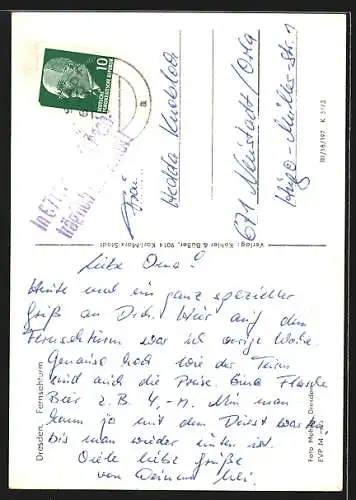 10
DEUTSCHE
DEMOKRATISCHE REPUBLIK
a
Frau
Hedda Knobloch
671 Neustadt/Orla
Hugo-Müller-Str. 1
III/18/197 K 51/3
Verlag: Kohler & Büßer, 9014 Karl-Marx-Stadt
Dresden, Fernsehturm
Foto Dresden
EVP M
Liebe Oma!
Heute mal ein ganz spezieller
Gruß an Dich. Hier auf dem
Fernsehturm war ich vorige Woche
Genauso hoch wie der Turm
sind auch die Preise. Eine Flasche
Bier z.B. 4,-M. Nun man
kann ja mit dem Durst warten
bis man wieder unten ist.
Viele liebe Grüße
von Deinem